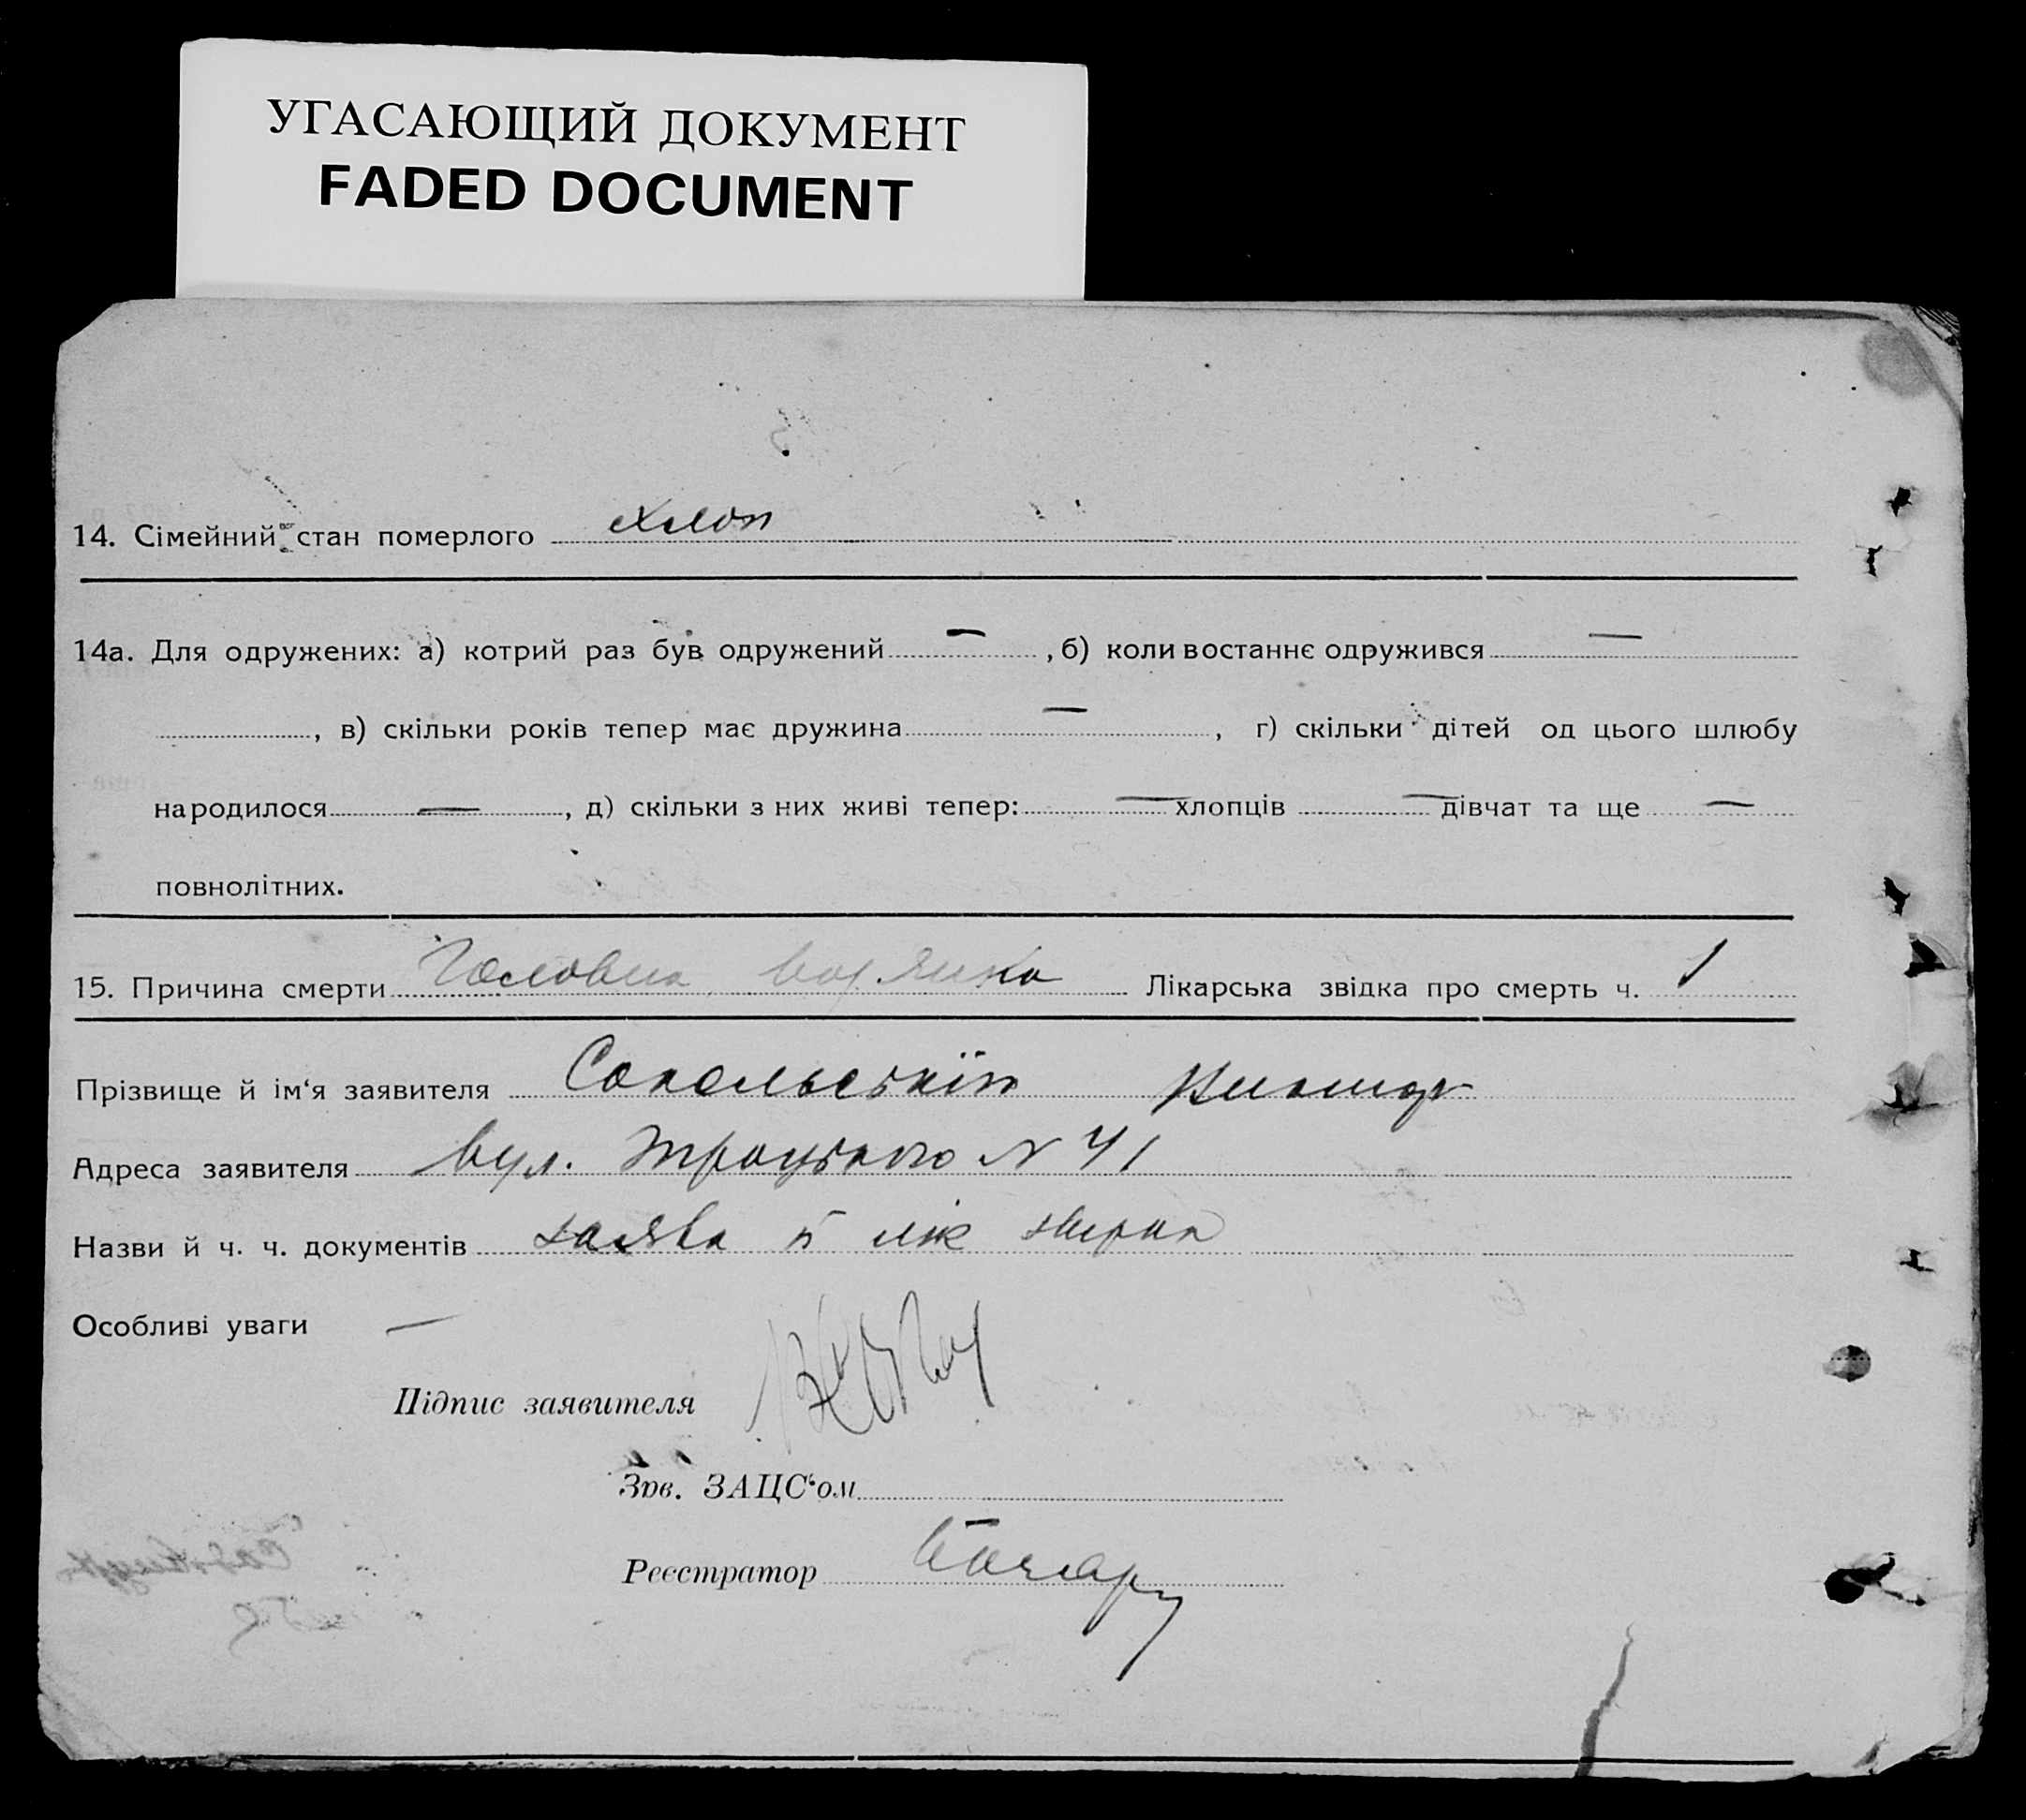 УГАСАЮЩИЙ ДОКУМЕНТ
FADED DOCUMENT
14. Сімейний стан померлого хлоп
14а. Для одружених: а) котрий раз був одружений — , б) коли востаннє одружився —
, в) скільки років тепер має дружина — , г) скільки дітей од цього шлюбу
народилося — , д) скільки з них живі тепер: — хлопців — дівчат та ще —
повнолітних.
15. Причина смерти Головна водянка Лікарська звідка про смерть ч. 1
Прізвище й ім‘я заявителя Сокольський Виктор
Адреса заявителя вул. Троцького N 41
Назви й ч. ч. документів заява й лік
Особливі уваги —
Підпис заявителя
Зав. ЗАЦС‘ом
Реєстратор